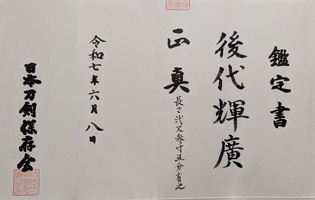 鑑定書
後代輝廣
正真
長サ弐尺参寸五分有之
令和七年六月八日
日本刀剣保存会